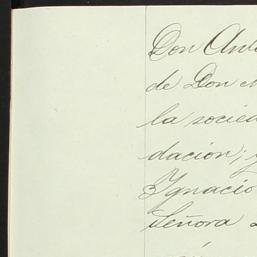 Don Anto
de Don M
la socied
dación; y
Ignacio
Señora